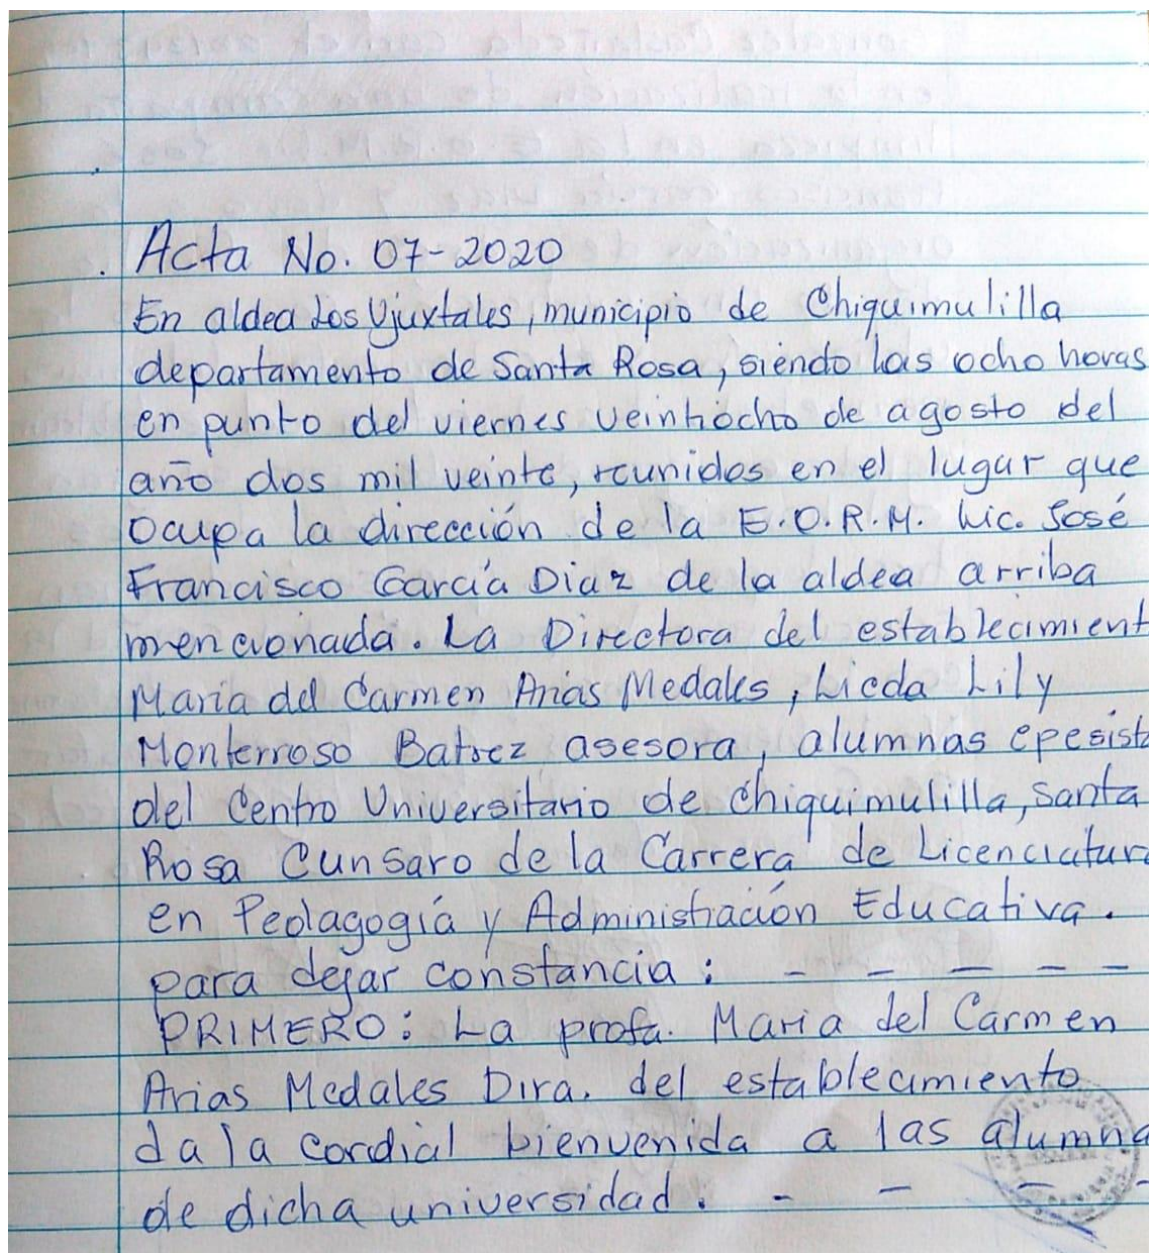 Acta No. 07-2020
En aldea Los Ujuxtales, municipio de Chiquimulilla
departamento de Santa Rosa, siendo las ocho horas
en punto del viernes veintiocho de agosto del
año dos mil veinte, reunidos en el lugar que
ocupa la dirección de la E.O.R.M. Lic. José
Francisco García Diaz de la aldea arriba
mencionada. La Directora del establecimient
Maria del Carmen Arias Medales, Licda Lily
Monterroso Batrez asesora, alumnas epesist
del Centro Universitario de Chiquimulilla, Santa
Rosa Cunsaro de la Carrera de Licenciatura
en Pedagogía y Administración Educativa.
para dejar constancia: - - - - -
PRIMERO: La profa. Maria del Carmen
Arias Medales Dira. del establecimiento
da la cordial bienvenida a las alumna
de dicha universidad. - - - -